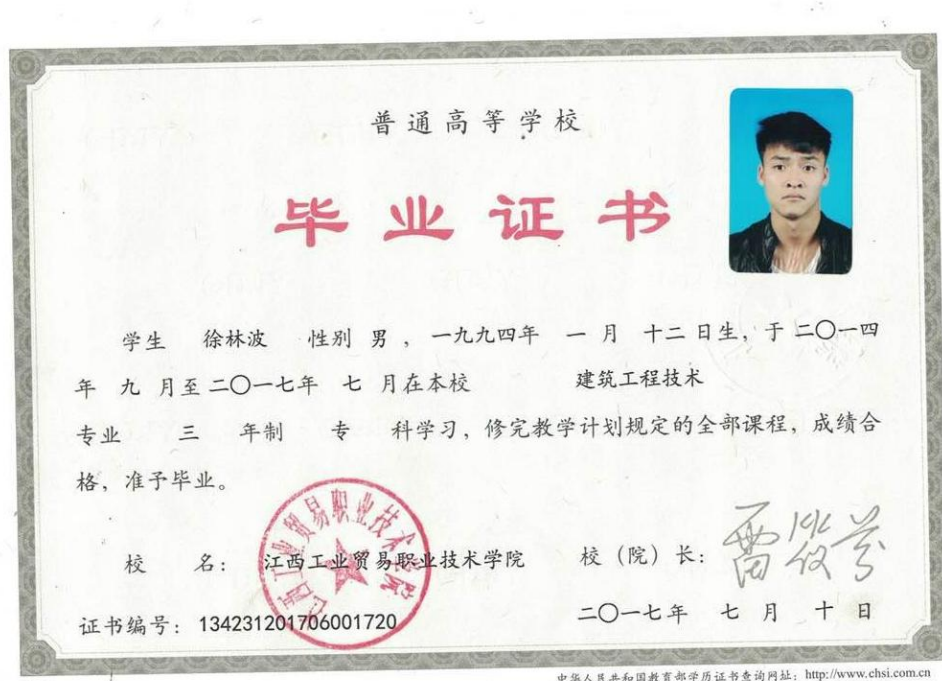 普通高等学校
毕业证书
学生 徐林波 性别 男 , 一九九四年 一 月 十二 日生, 于 二〇一四
年 九 月至 二〇一七年 七 月在本校 建筑工程技术
专业 三 年制 专 科学习, 修完教学计划规定的全部课程, 成绩合
格, 准予毕业。
江西工业贸易职业技术学院
校 名: 江西工业贸易职业技术学院 校 (院) 长:
证书编号: 134231201706001720 二〇一七年 七 月 十 日
中华人民共和国教育部学历证书查询网址: http://www.chsi.com.cn